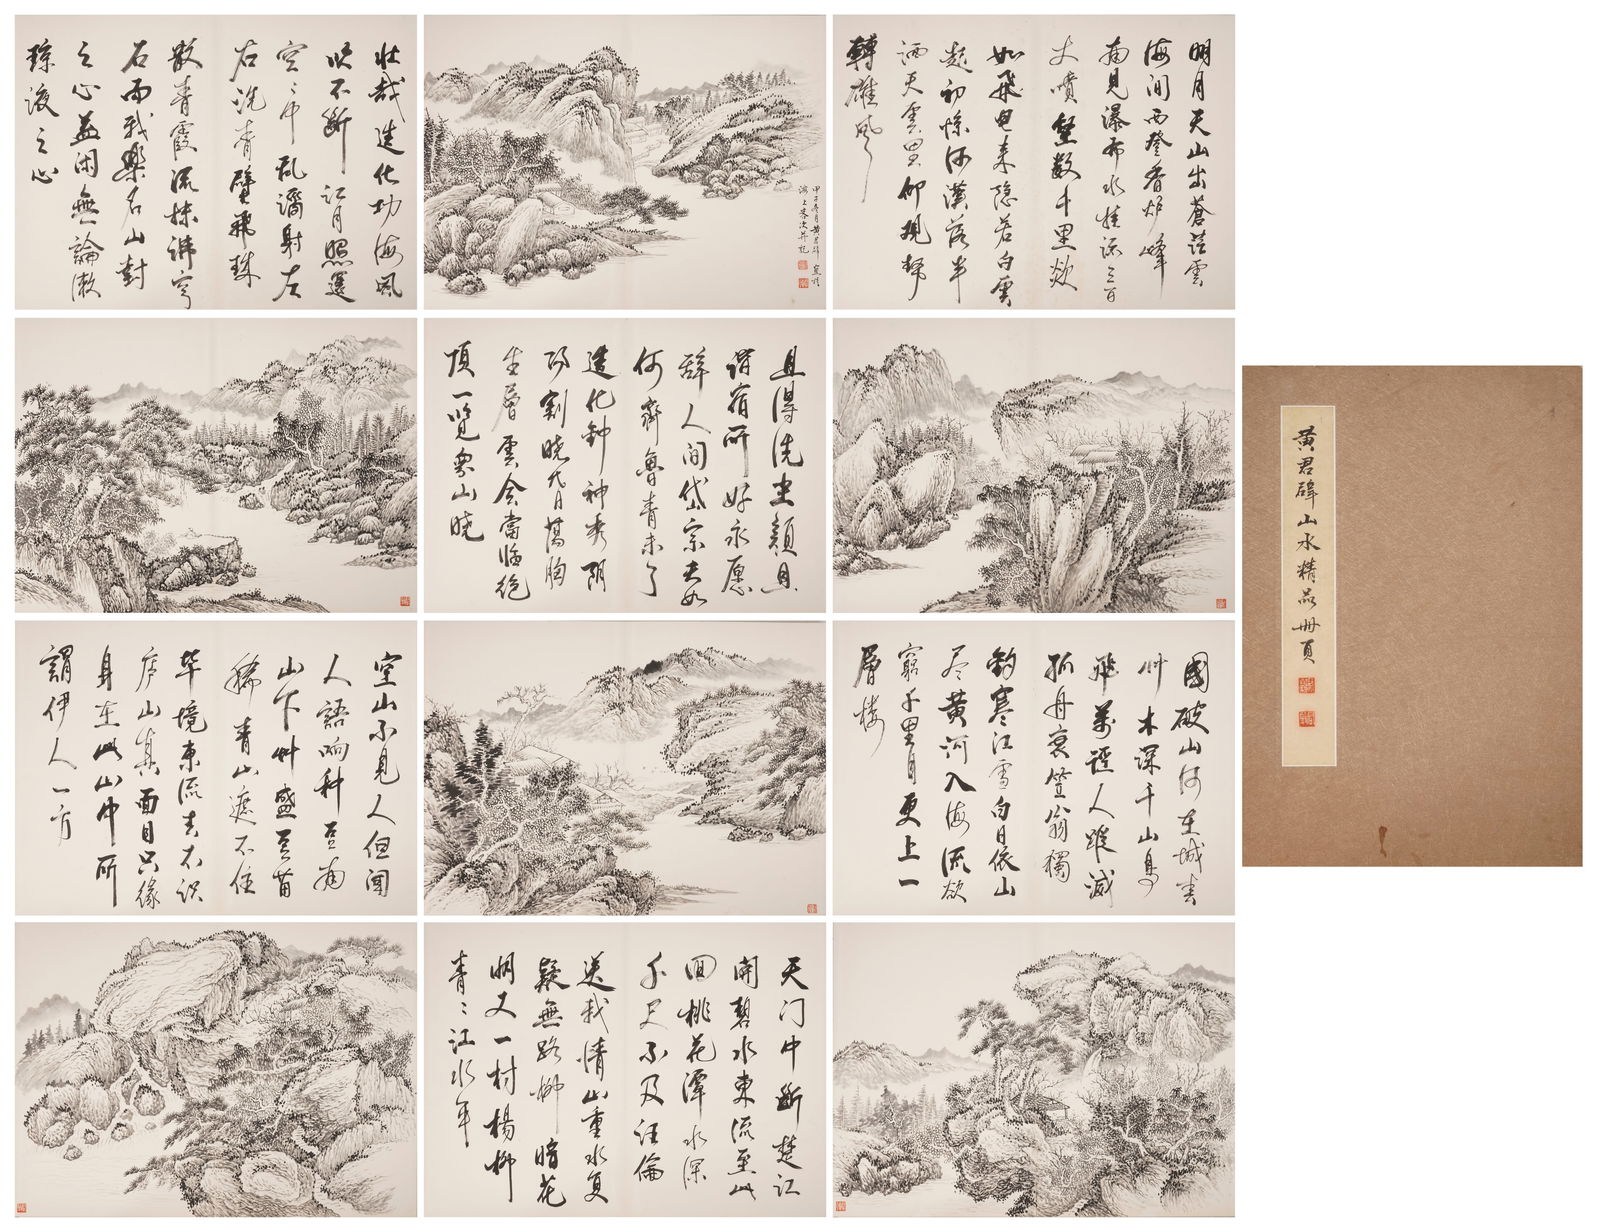 黄君璧山水精品册頁
明月天山出蒼茫雲
海间西登香炉峰
南見瀑布水挂流三百
丈噴壑数十里欻
如飛电来隐若白虹
起初惊河漢落半
洒天雲里仰观势
轉雄風
甲子冬月黄君璧寫於
海上客次并記
壮哉造化功海風
吹不断江月照還
空〻中乱潈射左
右洗青壁飛珠
散青霞流沫沸穹
石而我樂名山對
之心益闲無論漱
琼液之心
且得洗尘颜且
谐宿所好永愿
辞人间岱宗夫如
何齊魯青未了
造化鍾神秀阴
阳割晓代日荡胸
生層雲会當临绝
顶一览衆山晓
國破山河在城春
艸木深千山鳥
飛萬逕人踪滅
孤舟蓑笠翁獨
釣寒江雪白日依山
尽黄河入海流欲
窮千里目更上一
層樓
空山不見人但闻
人語响种豆南
山下艸盛豆苗
稀青山遮不住
毕境東流去不识
庐山真面目只缘
身在此山中所
謂伊人一方
天门中断楚江
開碧水東流至此
回桃花潭水深
千尺不及汪倫
送我情山重水复
疑無路柳暗花
明又一村楊柳
青〻江水平